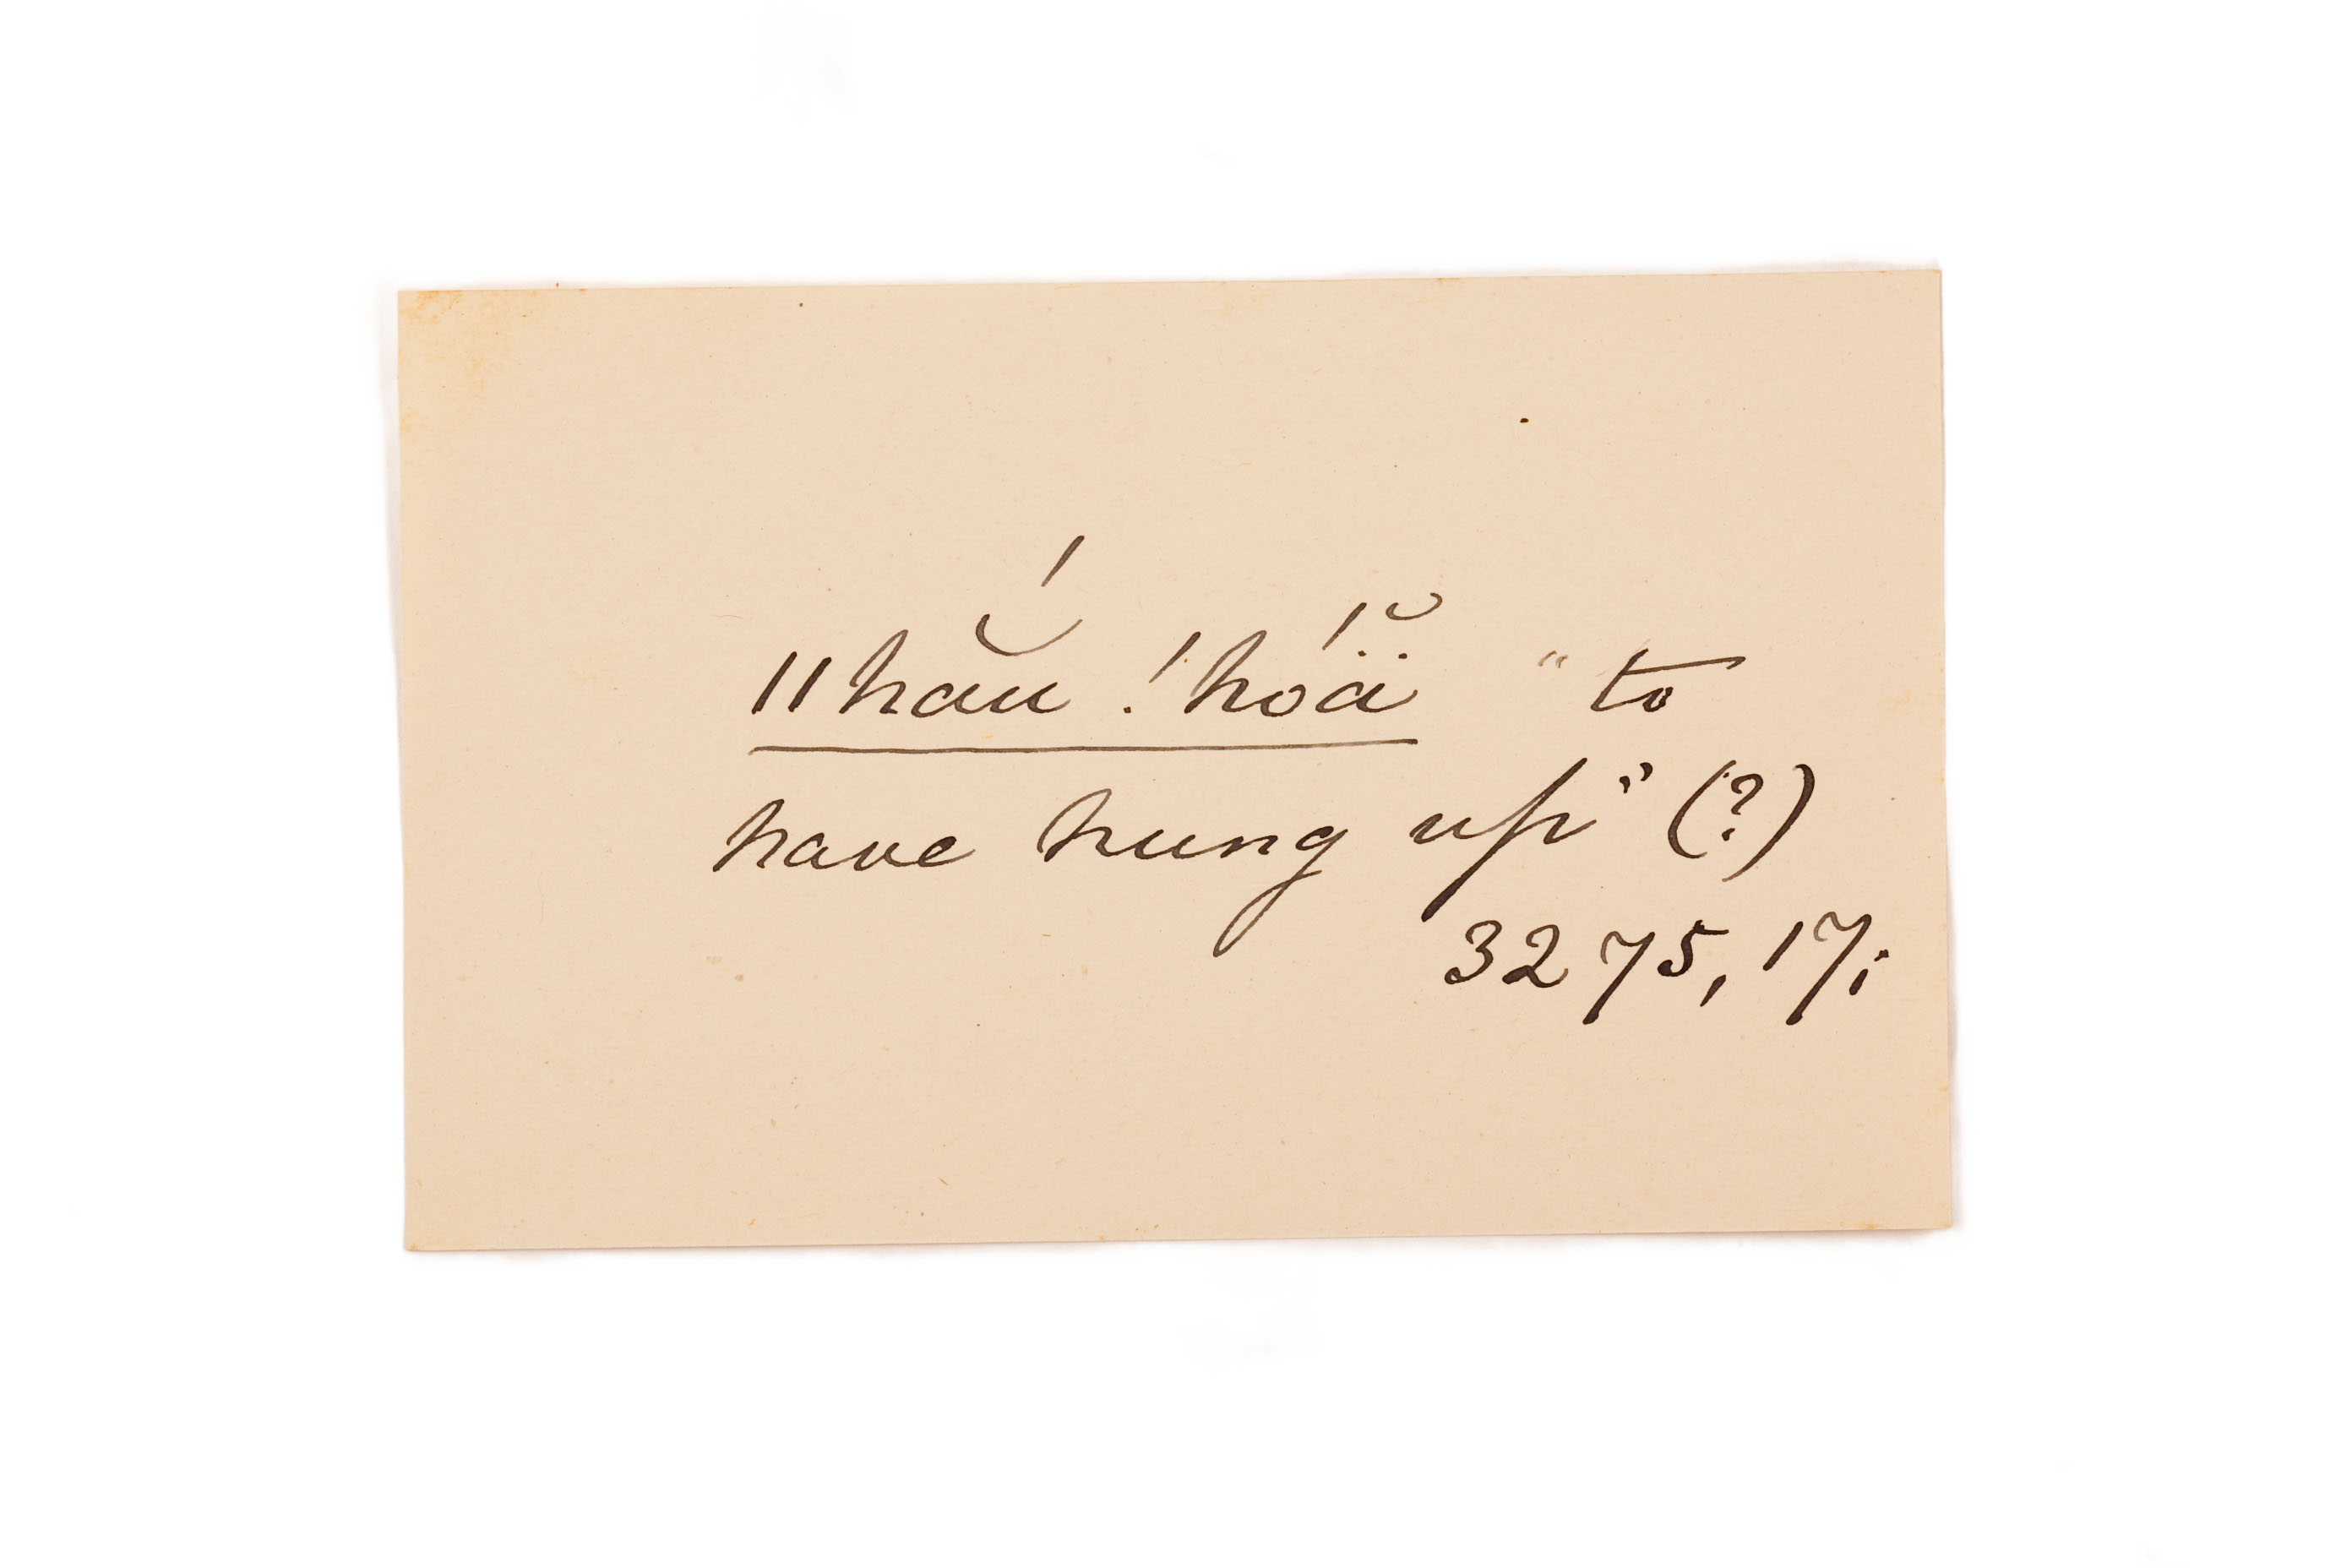 ǁhắu !hóä̆ "to
have hung up" (?)
3275, 17;